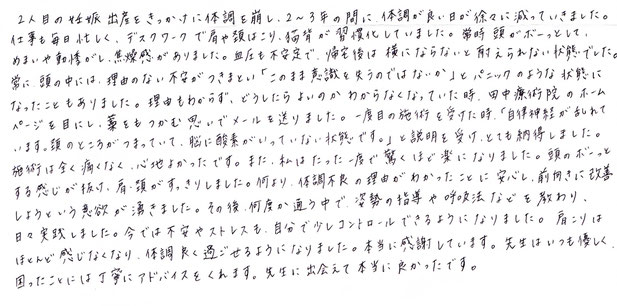 2人目の妊娠出産をきっかけに体調を崩し、2~3年の間に、体調が良い日が徐々に減っていきました。
仕事も毎日忙しく、デスクワークで肩や頚はこり、猫背が習慣化していました。常時頭がボーッとして、
めまいや動悸がし、焦燥感がありました。血圧も不安定で、帰宅後は横にならないと耐えられない状態でした。
常に、頭の中には、理由のない不安がつきまとい「このまま意識を失うのではないか」とパニックのような状態に
なったこともありました。理由もわからず、どうしたらよいのかわからなくなっていた時、田中療術院のホーム
ページを目にし、藁をもつかむ思いでメールを送りました。一度目の施術を受けた時、「自律神経が乱れて
います。頚のところがつまっていて、脳に酸素がいっていない状態です。」と説明を受け、とても納得しました。
施術は全く痛くなく、心地よかったです。また、私はたった一度で驚くほど楽になりました。頭のボーッと
する感じが抜け、肩・頚がすっきりしました。何より、体調不良の理由がわかったことに安心し、前向きに改善
しようという意欲が湧きました。その後、何度か通う中で、姿勢の指導や呼吸法などを教わり、
日々実践しました。今では不安やストレスも、自分で少しコントロールできるようになりました。肩こりは
ほとんど感じなくなり、体調良く過ごせるようになりました。本当に感謝しています。先生はいつも優しく、
困ったことには丁寧にアドバイスをくれます。先生に出会えて本当に良かったです。